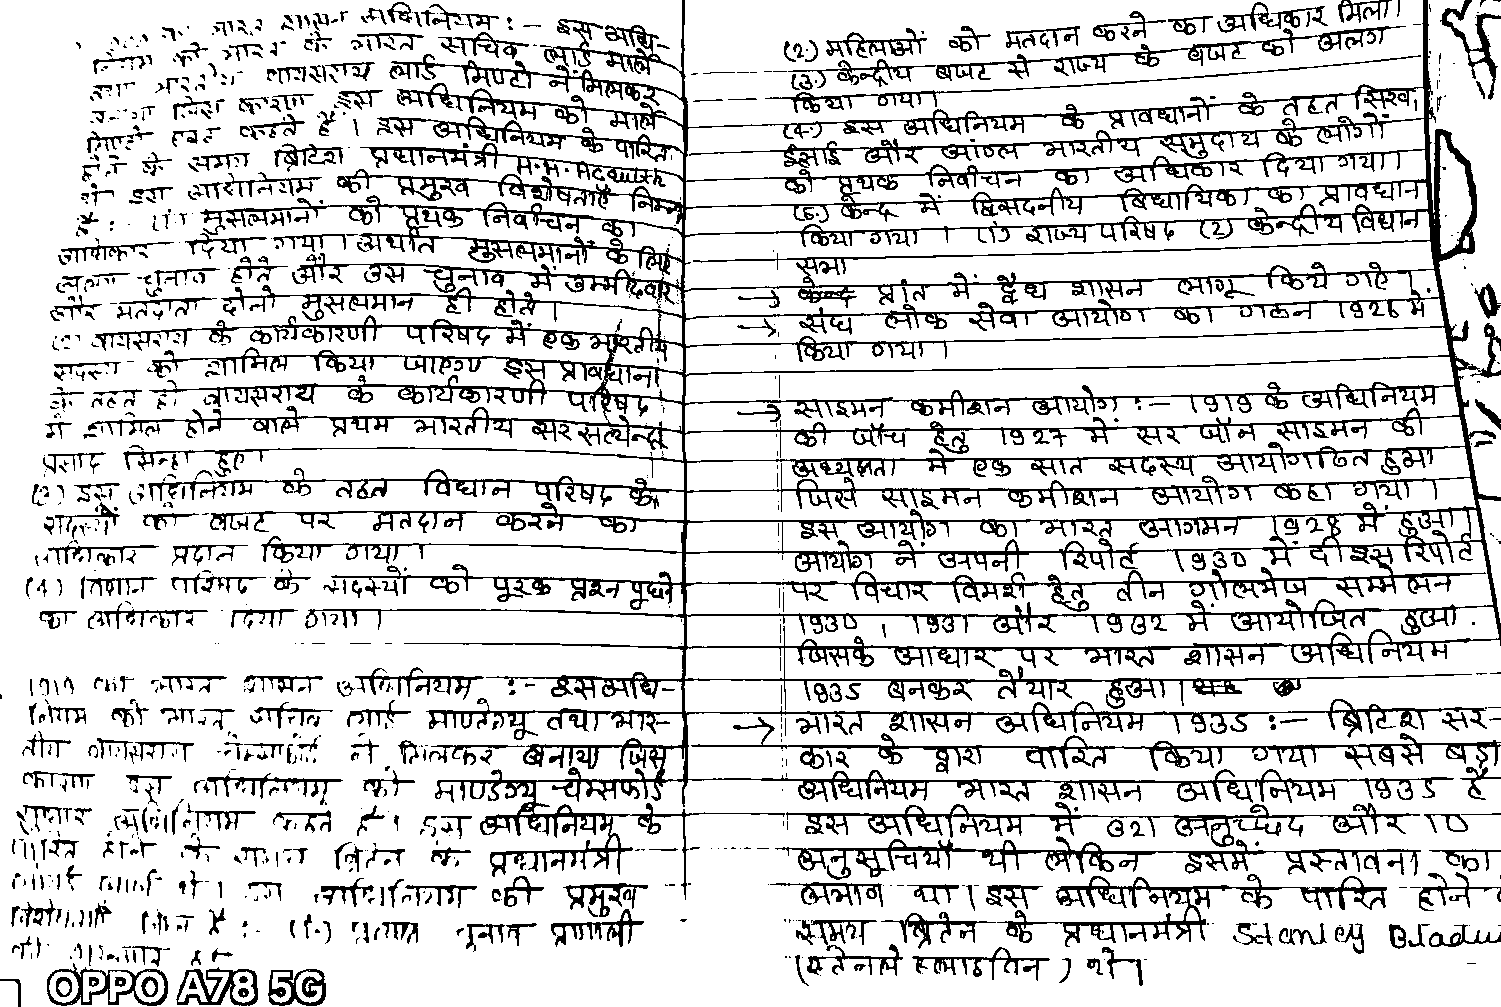 शासन अधिनियम :- इस अधि-
नियम को भारत के भारत सचिव लार्ड मार्ले
तथा वायसराय लार्ड मिण्टो ने मिलकर
जिस कारण इस अधिनियम को मार्ले
मिण्टो एक्ट कहते हैं। इस अधिनियम के पारित
होने के समय ब्रिटिश प्रधानमंत्री H.H. Acquith
थे इस अधिनियम की प्रमुख विशेषताएँ निम्न
है:- (1) मुसलमानों को प्रथक निर्वाचन का
अधिकार दिया गया। अर्थात मुसलमानों के लिए
अलग चुनाव होते और उस चुनाव में उम्मीदवार
और मतदाता दोनो मुसलमान ही होते।
(2) वायसराय के कार्यकारणी परिषद में एक भारतीय
सदस्य को शामिल किया जाएगा इस प्रावधान
के तहत ही वायसराय के कार्यकारणी परिषद
में शामिल होने वाले प्रथम भारतीय सर सत्येन्द्र
प्रसाद सिन्हा हुए।
(3) इस अधिनियम के तहत विधान परिषद के
सदस्यों को बजट पर मतदान करने का
अधिकार प्रदान किया गया।
(4) विधान परिषद के सदस्यों को पूरक प्रश्न पूछने
का अधिकार दिया गया।
1919 का भारत शासन अधिनियम :- इस अधि-
नियम को भारत सचिव लार्ड माण्टेग्यू तथा भार-
तीय वायसराय चेम्सफोर्ड ने मिलकर बनाया जिस
कारण इस अधिनियम को माण्टेग्यू चेम्सफोर्ड
सुधार अधिनियम कहते है। इस अधिनियम के
पारित होने के समय ब्रिटेन के प्रधानमंत्री
थे। इस अधिनियम की प्रमुख
विशेषताएँ निम्न है :- (1.) प्रत्यक्ष चुनाव प्रणाली
की
(2.) महिलाओं को मतदान करने का अधिकार मिला।
(3.) केन्द्रीय बजट से राज्य के बजट को अलग
किया गया।
(4.) इस अधिनियम के प्रावधानों के तहत सिख,
ईसाई और आंग्ल भारतीय समुदाय के लोगों
को प्रथक निर्वाचन का अधिकार दिया गया।
(5.) केन्द्र में द्विसदनीय विधायिका का प्रावधान
किया गया। (1) राज्य परिषद (2) केन्द्रीय विधान
सभा
→ केन्द्र प्रांत में द्वैध शासन लागू किये गऐ।
→ संघ लोक सेवा आयोग का गठन 1926 में
किया गया।
→ साइमन कमीशन आयोग :- 1919 के अधिनियम
की जाँच हेतु 1927 में सर जॉन साइमन की
अध्यक्षता में एक सात सदस्य आयोग गठित हुआ
जिसे साइमन कमीशन आयोग कहा गया।
इस आयोग का भारत आगमन 1928 में हुआ।
आयोग नें अपनी रिपोर्ट 1930 में दी इस रिपोर्ट
पर विचार विमर्श हेतु तीन गोलमेज सम्मेलन
1930, 1931 और 1932 में आयोजित हुआ.
जिसके आधार पर भारत शासन अधिनियम
1935 बनकर तैयार हुआ।
→ भारत शासन अधिनियम 1935 :- ब्रिटिश सर-
कार के द्वारा पारित किया गया सबसे बड़ा
अधिनियम भारत शासन अधिनियम 1935 है
इस अधिनियम में 321 अनुच्छेद और 10
अनुसूचियाँ थी लेकिन इसमें प्रस्तावना का
अभाव था। इस अधिनियम के पारित होने
समय ब्रिटेन के प्रधानमंत्री Stanley
(स्टेनले ) थे।
OPPO A78 5G